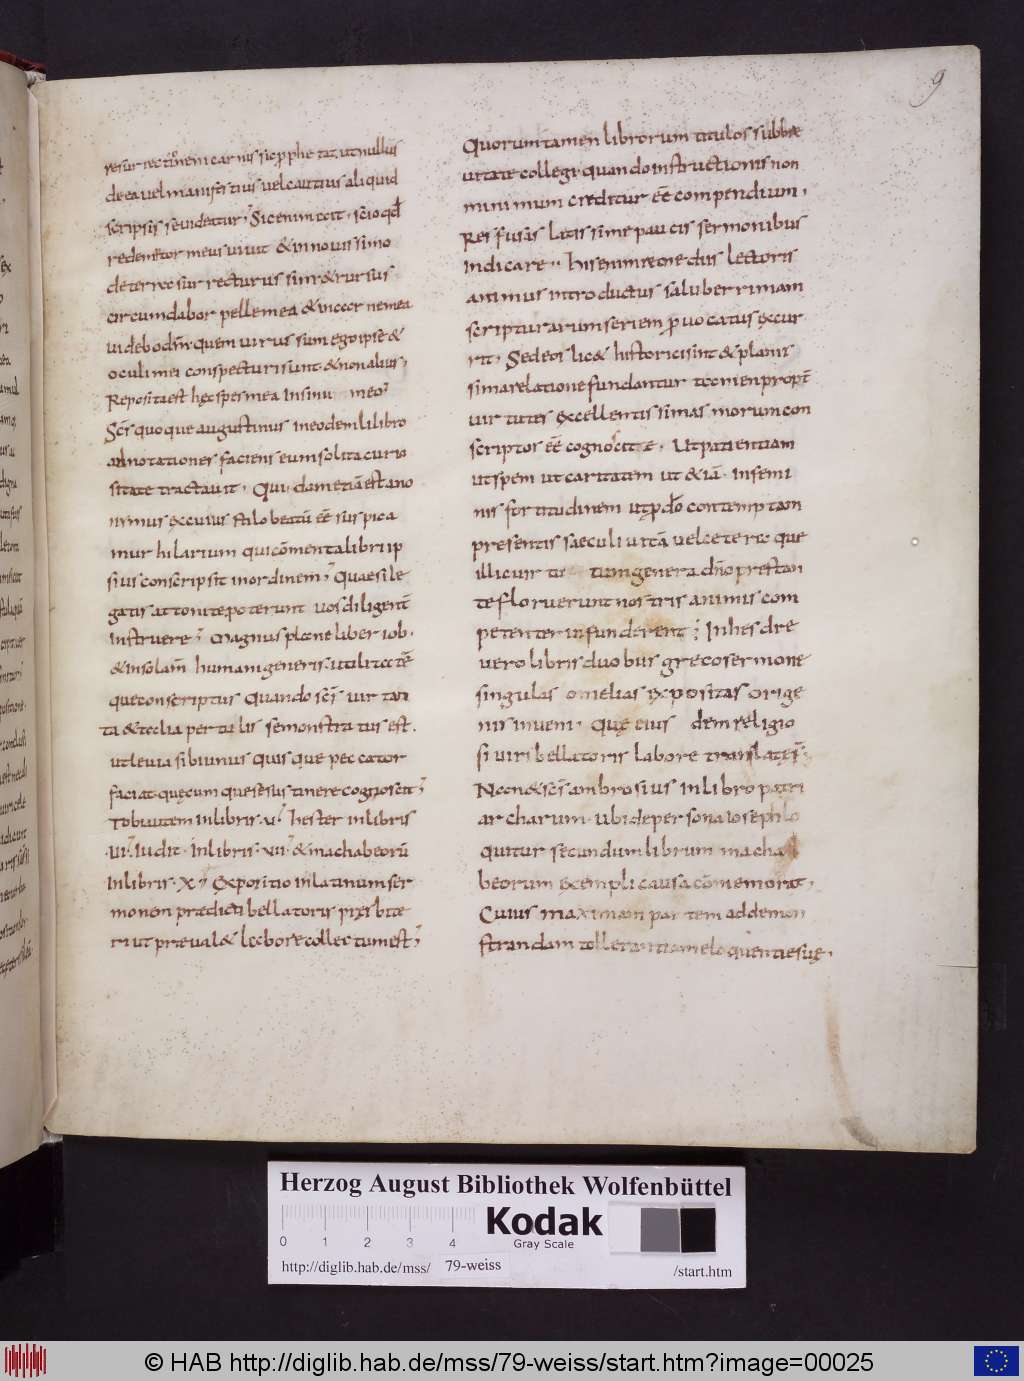 9
resurrectionem carnis sic pphetat ut nullus
de ea vel manifestius vel cautius aliquid
scripsis se videatur; Sic enim dicit. scio qđ
redemptor meus vivit & in novissimo
de terra surrecturus sim & rursus
circumdabor pelle mea & in carne mea
videbo dm̄. quem visurus sum ego ipse &
oculi mei conspecturi sunt. & non alius;
Reposita est hęc spes mea in sinu meo;
Scs̄ quoque augustinus in eodem lilibro
adnotationes faciens eum solita curio
sitate tractavit. Qui dam etiā est ano
nimus ex cuius stilo beatū eē suspica
mur hilarium qui cōmenta libri ip
sius conscripsit in ordinem; Quae si le
gatis attonite poterunt vos diligent̄
instruere; Magnus plane liber iob.
& in solam̄ humani generis. utilitatē
que conscriptus Quando scs̄ vir tan
ta & talia pertulis se monstratus est.
ut levia sibi unus quis que peccator
faciat quęcumque se sustinere cognoscit;
Tobi autem in libris. v. hester in libris
.vi. Iudit. in libris. vii. & machabeorū
in libris. x; Expositio in latinum ser
monem prædicti bellatoris prs̄bite
ri ut præval& labore collectum est;
Quorum tamen librorum titulos sub bre
vitate collegi. quando instructionis non
minimum creditur eē compendium.
Res fusas latissime paucis sermonibus
indicare.. his enim remediis lectoris
animus introductus saluberrimam
scripturarum seriem p̱vocatus excur
rit. Sed eos lic& historici sint & planis
sima relatione fundantur tamen propt̄
virtutes excellentissimas morum con
scriptos eē cognoscite. Ut patientiam
ut spem ut caritatem ut &iā. in femi
nis fortitudinem ut p̱ do contemptam
presentis saeculi vitā vel cetera que
illic virtutum genera dn̄o prestan
te floruerunt nostris animis com
petenter infunderent; In hesdre
vero libris duobus greco sermone
singulas omelias expositas orige
nis inveni. Quę eius dem religio
si viri bellatoris labore translatę s̄;
Nec n & scs̄ ambrosius in libro patri
archarum. ubi de persona ioseph lo
quitur secundum librum macha
beorum exempli causa cōmemorat.
Cuius maximam partem ad demon
strandam tollerantiam eloquentie suę.
Herzog August Bibliothek Wolfenbüttel
0 1 2 3 4
Kodak
Gray Scale
http://diglib.hab.de/mss/ 79-weiss /start.htm
© HAB http://diglib.hab.de/mss/79-weiss/start.htm?image=00025